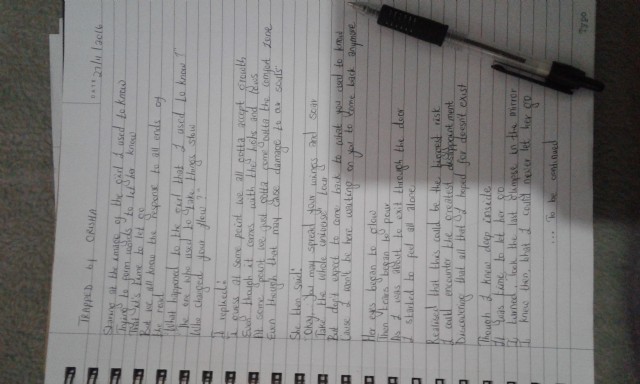 TRAPPED by
22/11/2016
Staring at the image of the girl I used to know
Trying to form words to let her know
That it's time to let go
But we all know the response to all ends of
the road
"What happened to the girl that I used to know?
The one who used to like things slow
Who changed your flow?"
I replied:
I guess at some point we all gotta accept growth
Even though it comes with the and
At some point we just gotta come outta the comfort zone
Even though that may case damage to our souls
She then said:
"Okay, you may spread your wings and soar
Take the whole universe tour
But don't expect to come back to what you used to know
Cause I won't be here waiting on you to come back anymore
Her eyes began to
Then tears began to pour
As I was about to exit through the door
I started to feel all alone
Realised that this could be the biggest risk
I could encounter the greatest disappointment
Discovering that all that I hoped for doesn't exist
Though I knew deep inside
It was time to let her go
I turned, took the last glimpse in the mirror
I knew then, that I could never let her go
... To be continued